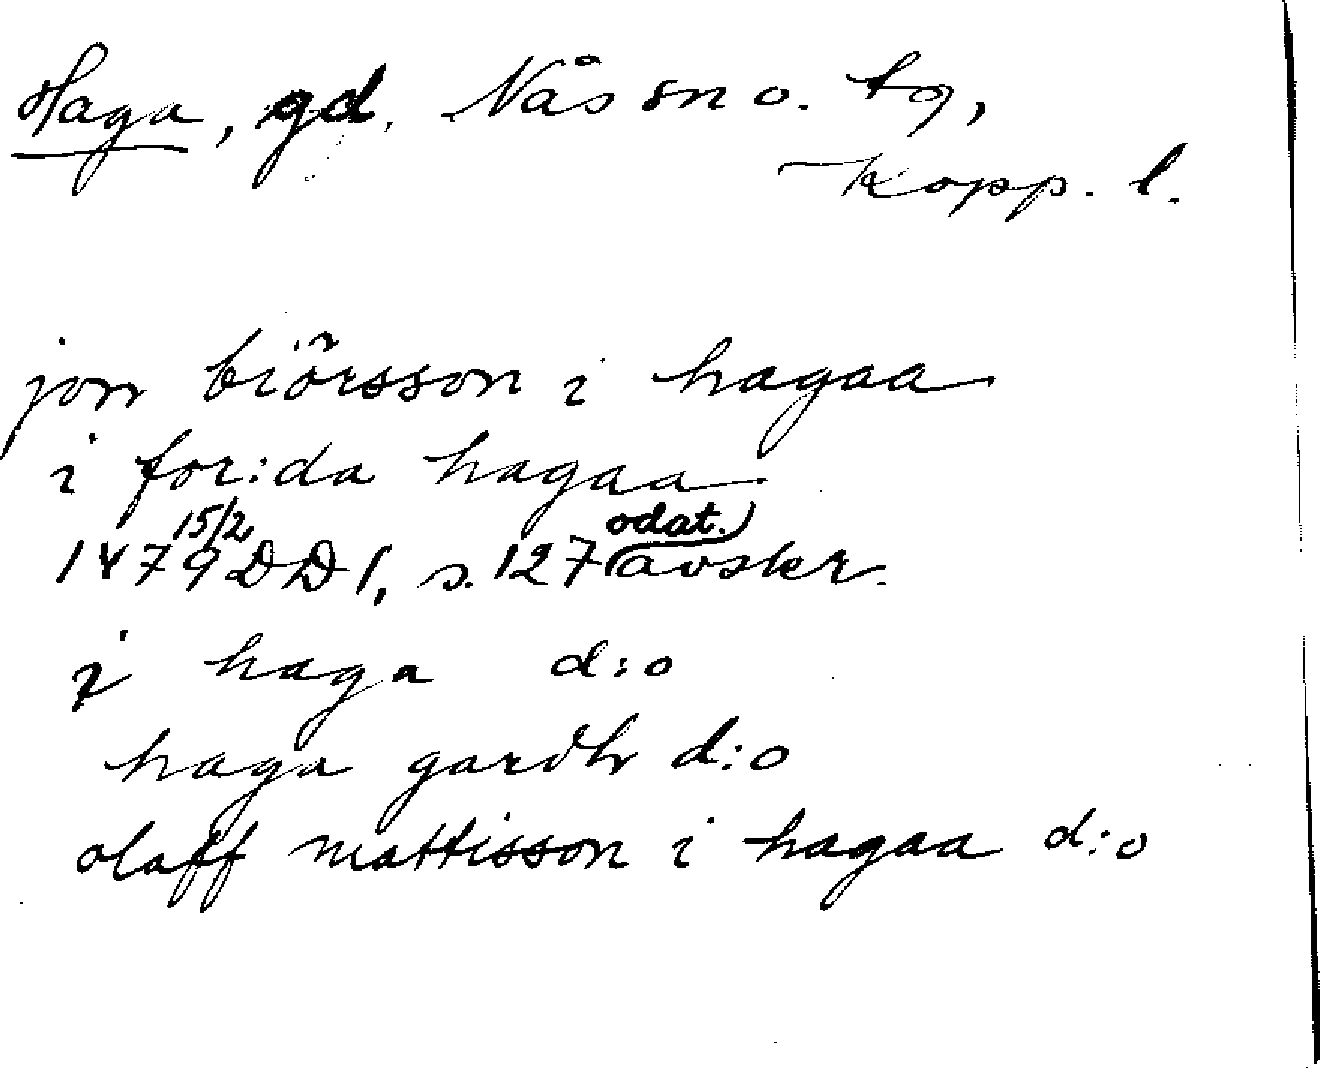 Haga, gd. Nås sn o. tg,
Kopp. l.
jon biörsson i hagaa
i for:da hagaa
1479 15/2 DD 1, s. 127 (odat. avskr.)
i haga d:o
haga gardh d:o
olaff mattisson i hagaa d:o